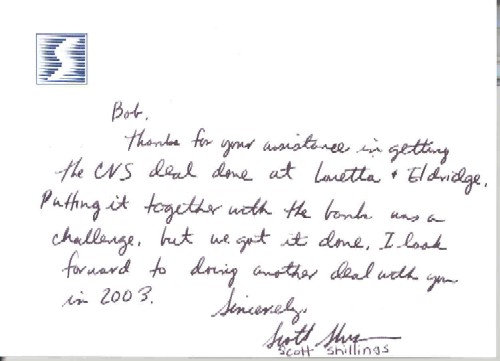 Bob,
Thanks for your assistance in getting
the CVS deal done at Loretta + Eldridge.
Putting it together with the bank was a
challenge, but we got it done. I look
forward to doing another deal with you
in 2003.
Sincerely,
Scott
Scott Shillings